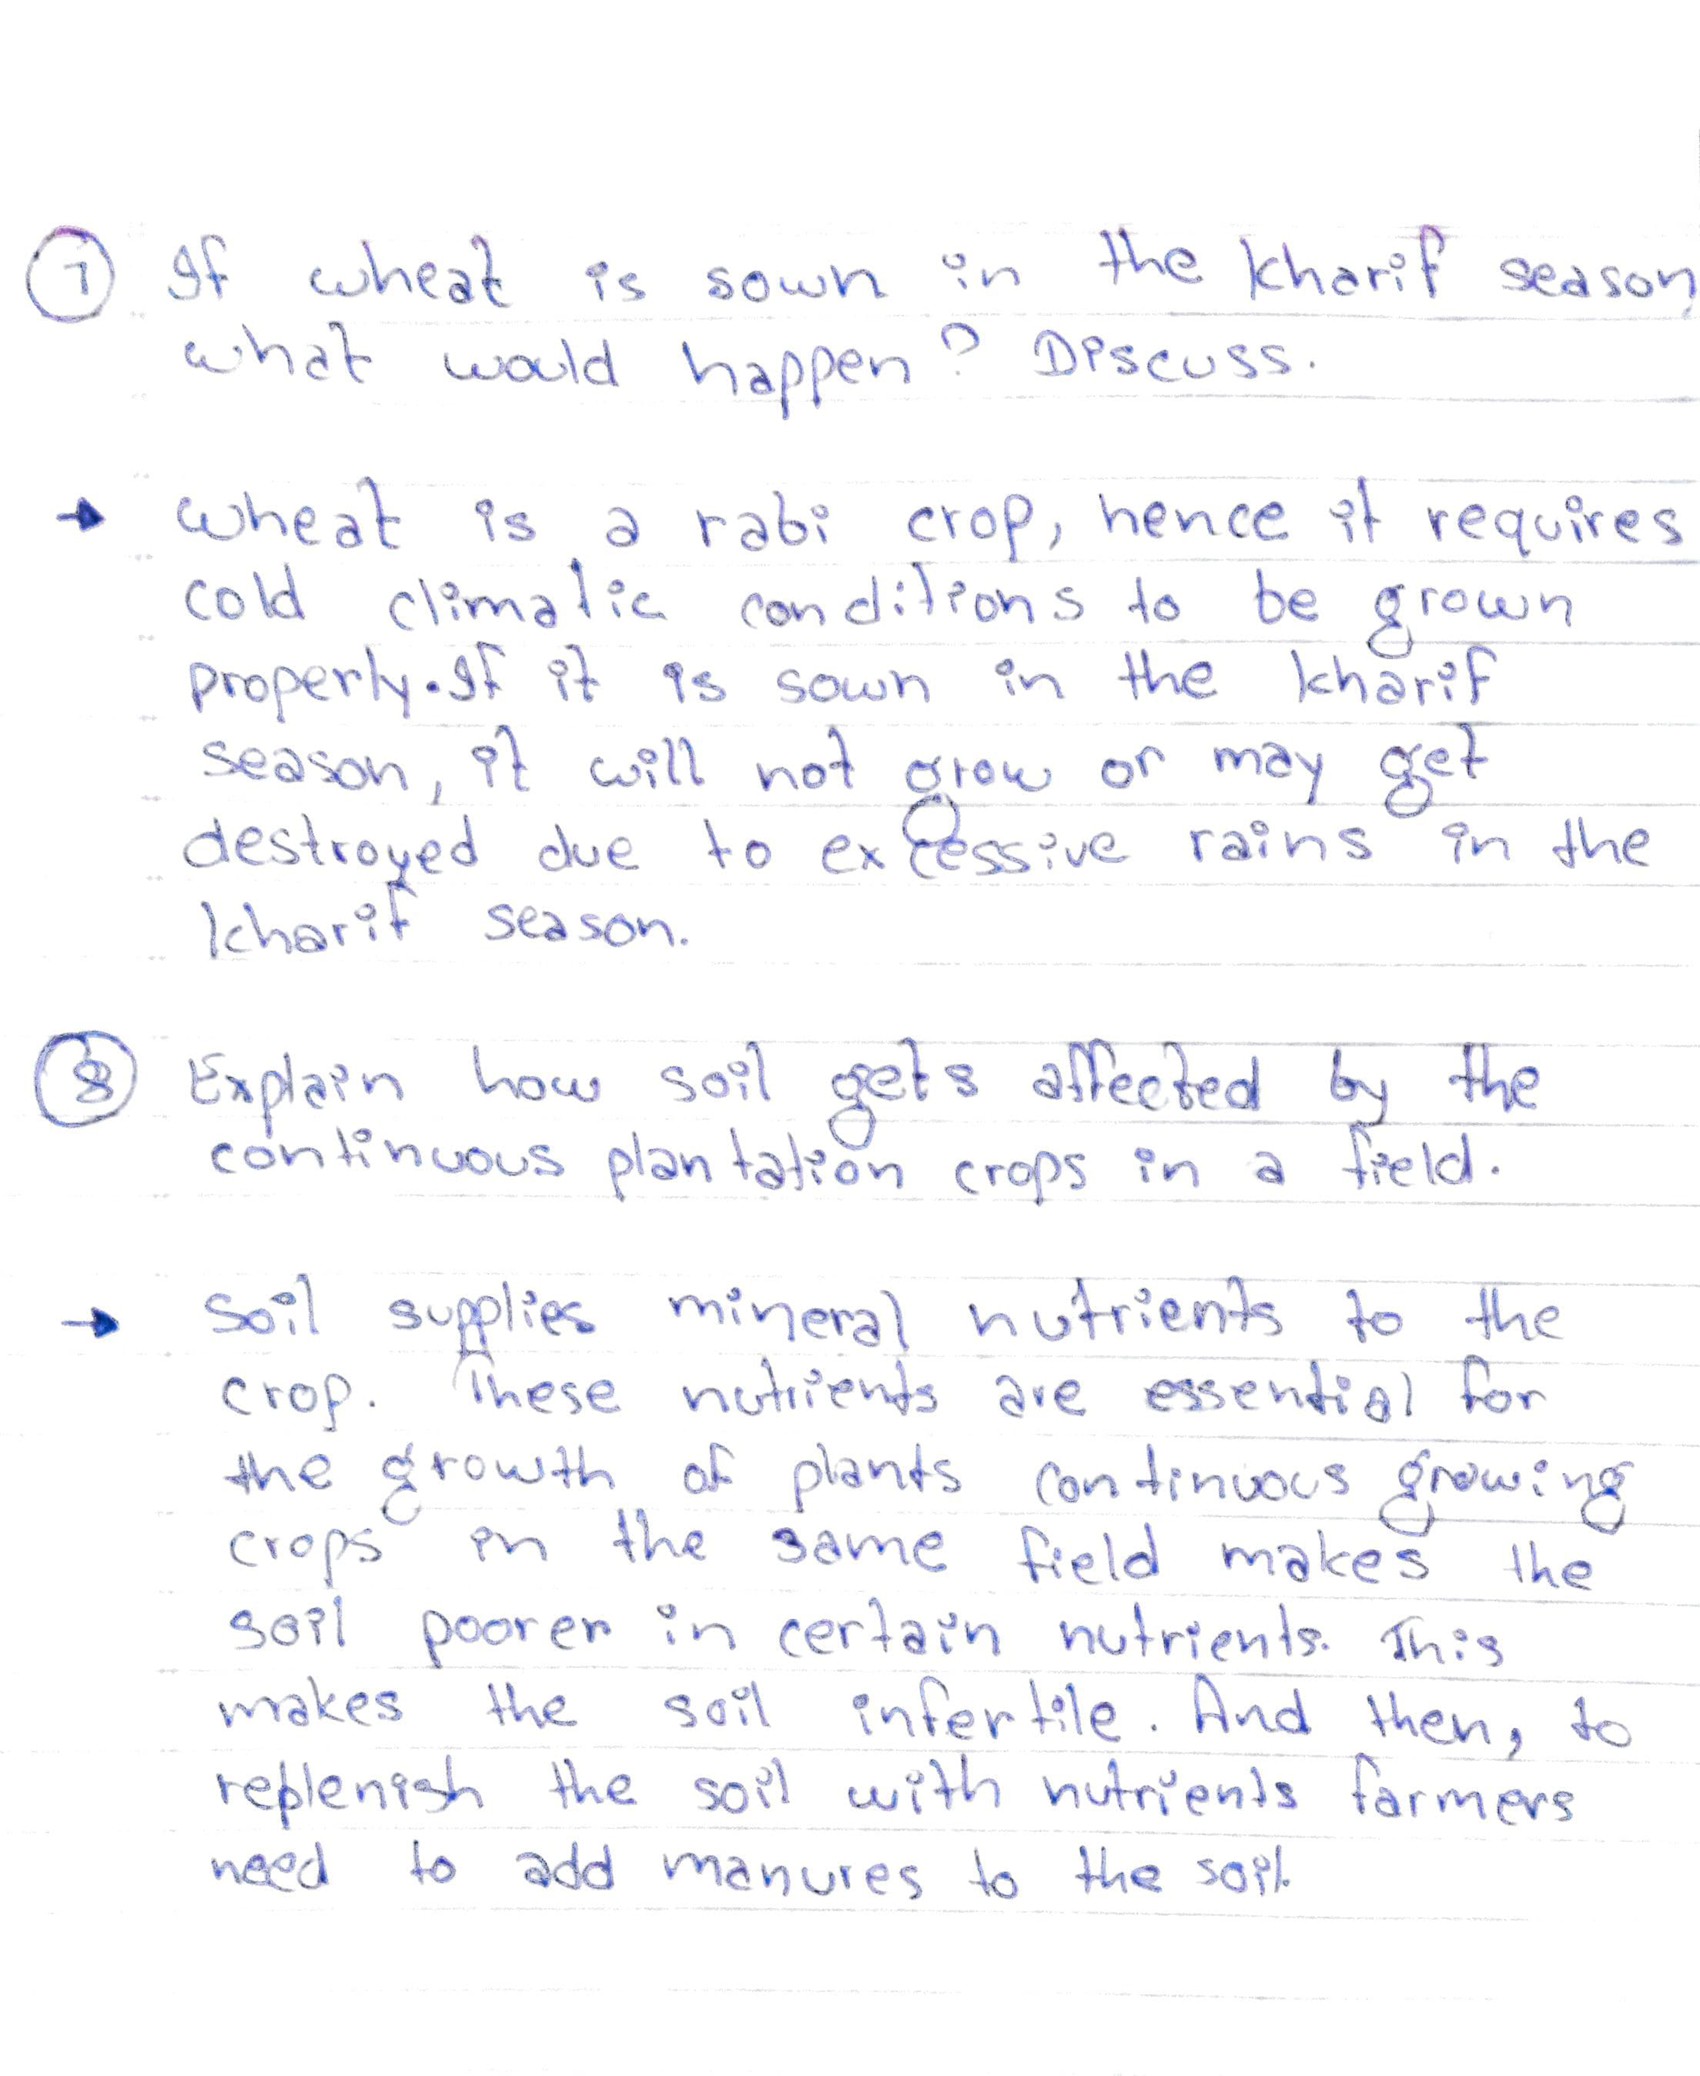 7 If wheat is sown in the kharif season,
what would happen? Discuss.
→ wheat is a rabi crop, hence it requires
cold climatic conditions to be grown
properly. If it is sown in the kharif
season, it will not grow or may get
destroyed due to excessive rains in the
kharif season.
8 Explain how soil gets affected by the
continuous plantation crops in a field.
→ Soil supplies mineral nutrients to the
crop. These nutrients are essential for
the growth of plants continuous growing
crops in the same field makes the
soil poorer in certain nutrients. This
makes the soil infertile. And then, to
replenish the soil with nutrients farmers
need to add manures to the soil.